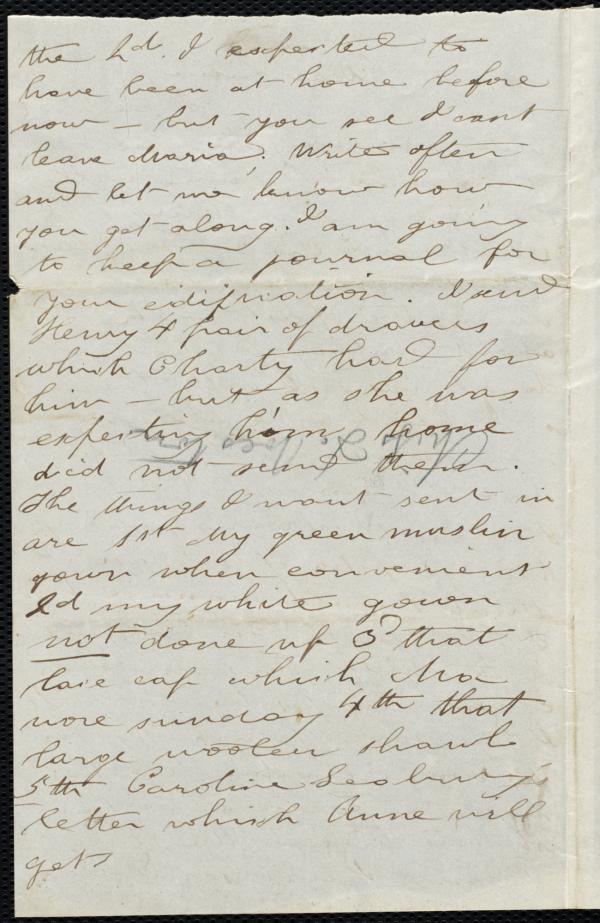 the 2d. I expected to
have been at home before
now – but you see I cant
leave Maria. Write often
and let me know how
you get along. I am going
to keep a journal for
your edification. I send
Henry 4 pair of drawers
which Charty had for
him – but as she was
expecting him home
did not send them.
The things I want sent in
are 1st My green muslin
gown when convenient
2d my white gown
not done up 3d that
lace cap which Ma
wore sunday 4th that
large woolen shawl
5th Caroline Seabury's
letter which Anne will
get